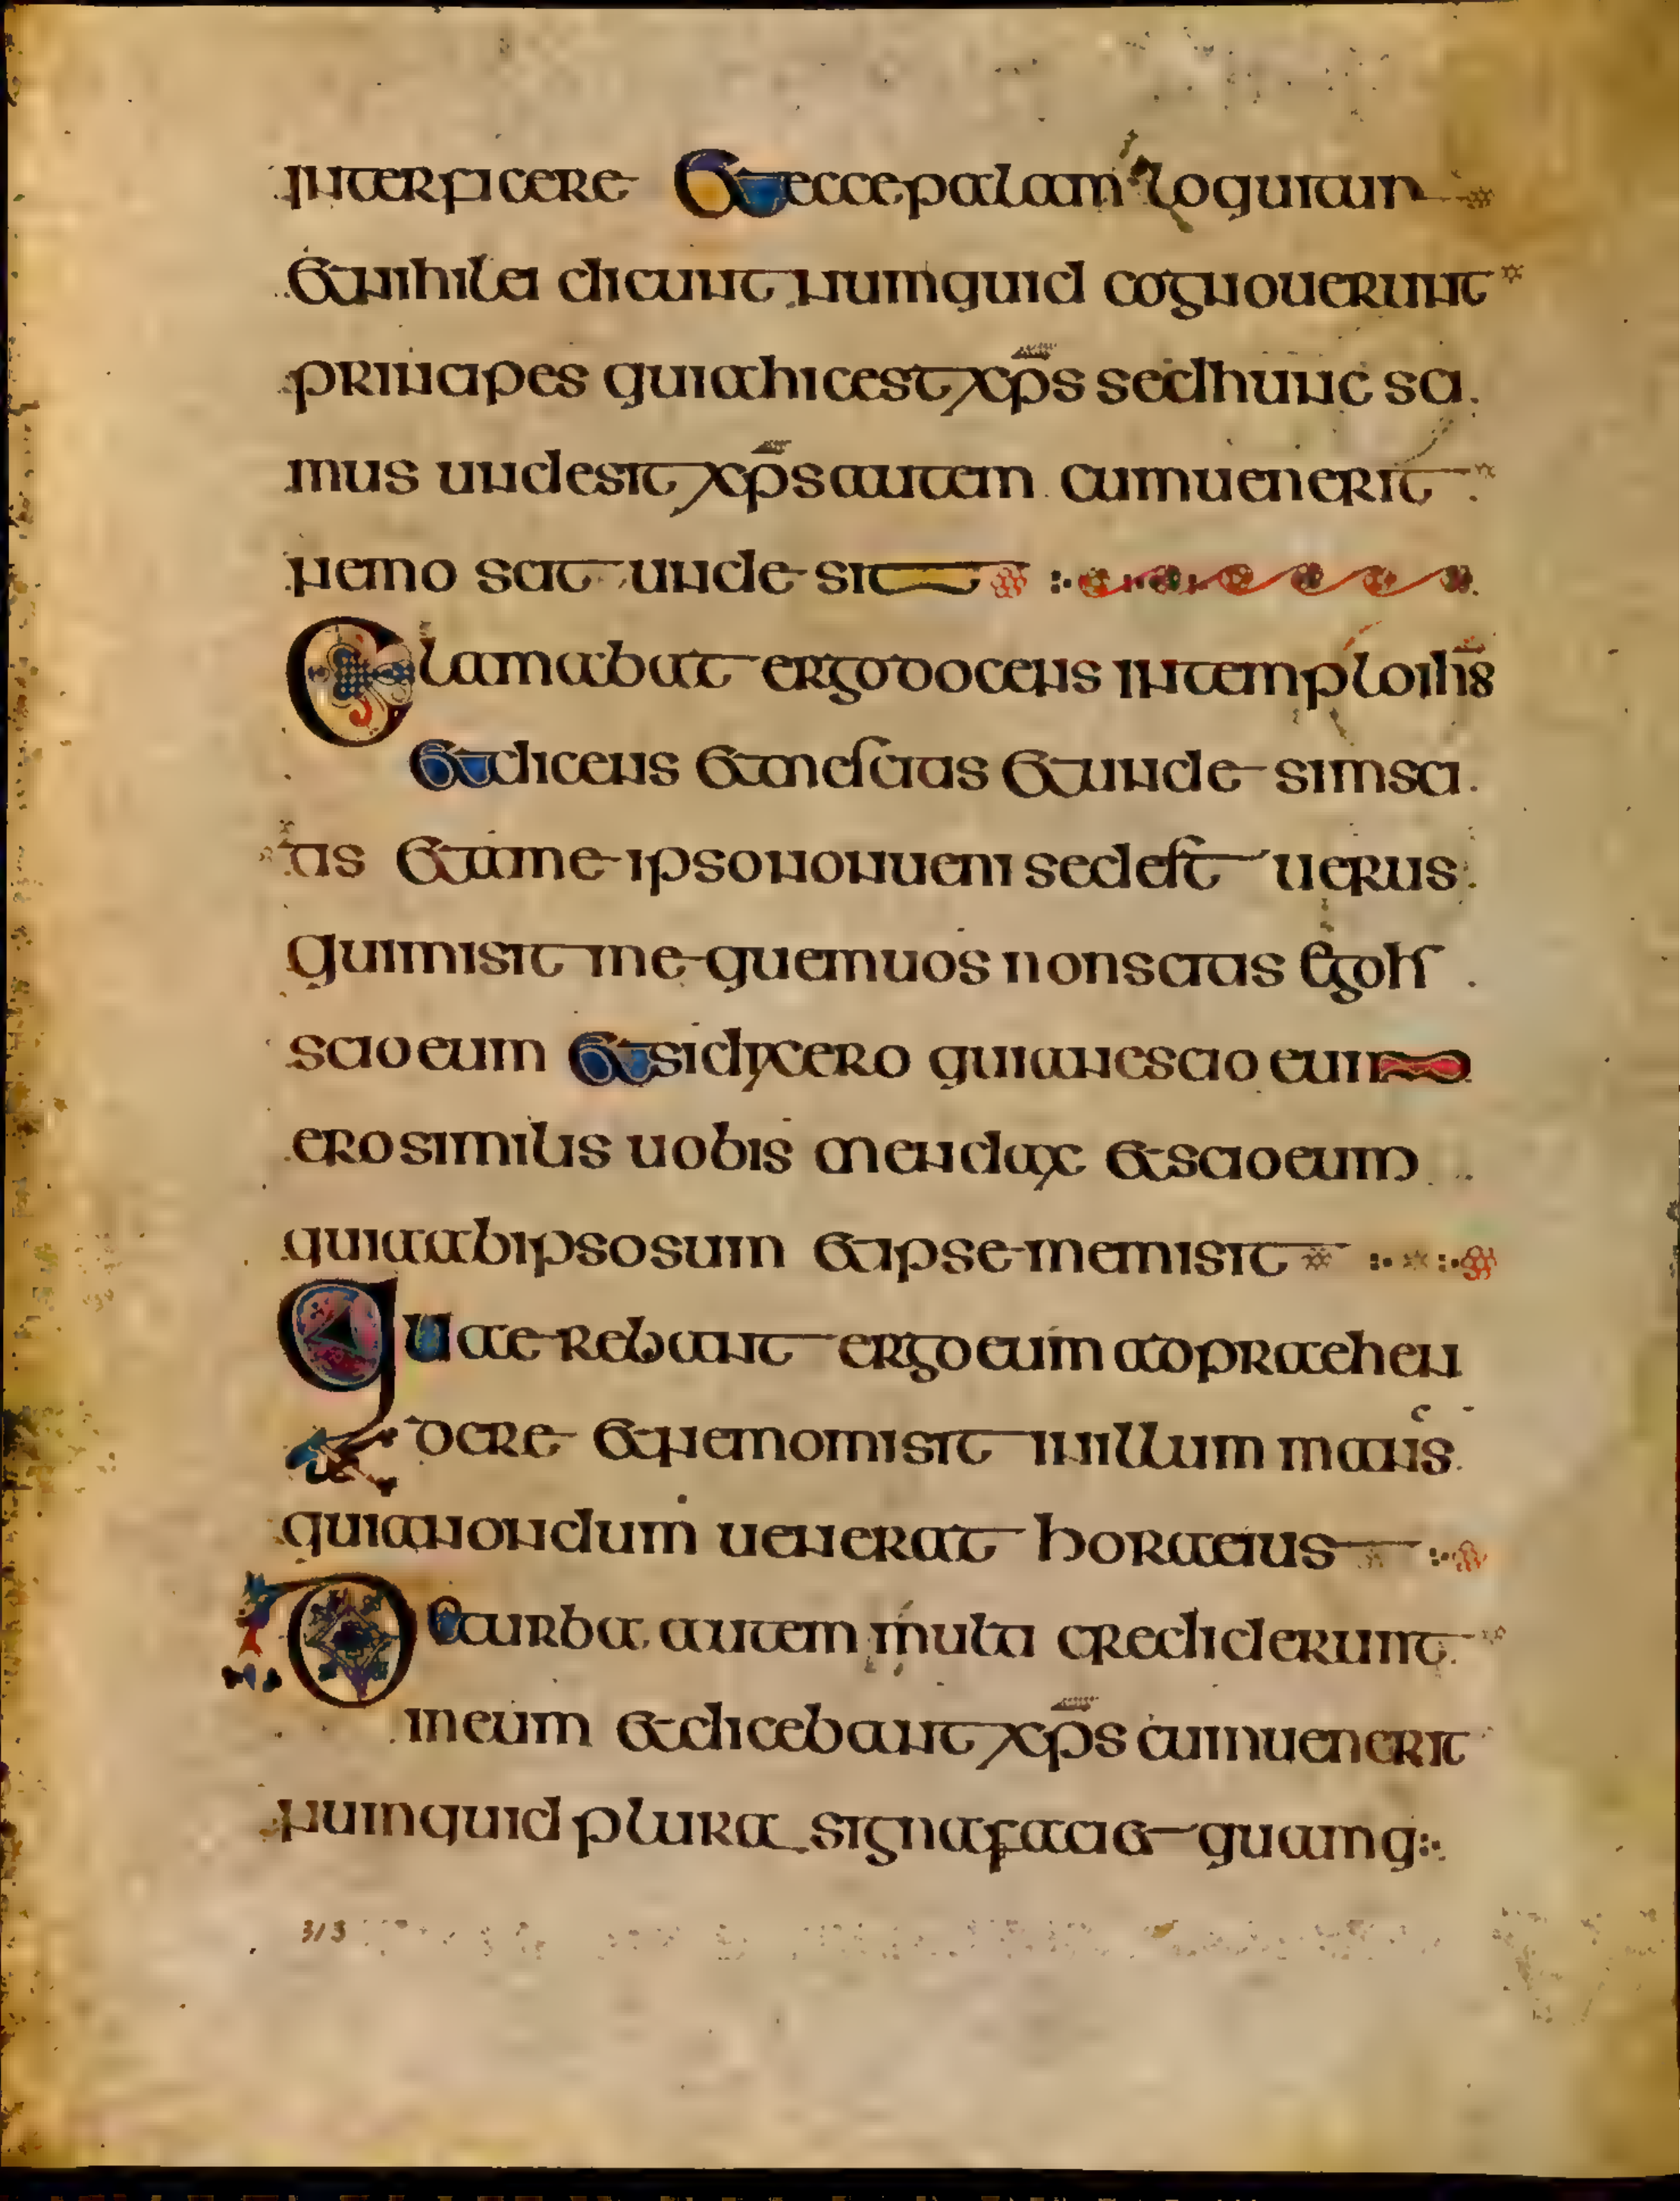 interficere Et ecce palam loquitur
et nihil ei dicunt numquid cognouerunt
principes quia hic est xp̄s sed hunc sci
mus unde sit xp̄s autem cum uenerit
nemo scit unde sit
Clamabat ergo docens in templo ih̄s
Et dicens et me scitis et unde sim sci
tis et a me ipso non ueni sed est uerus
qui misit me quem uos non scitis Ego
scio eum Et si dixero quia nescio eum
ero similis uobis mendax et scio eum
quia ab ipso sum et ipse me misit
Quaerebant ergo eum adpraehen
dere et nemo misit in illum manis
quia nondum uenerat hora eius
De turba autem multi crediderunt
in eum et dicebant xp̄s cum uenerit
numquid plura signa faciet quam q:
313